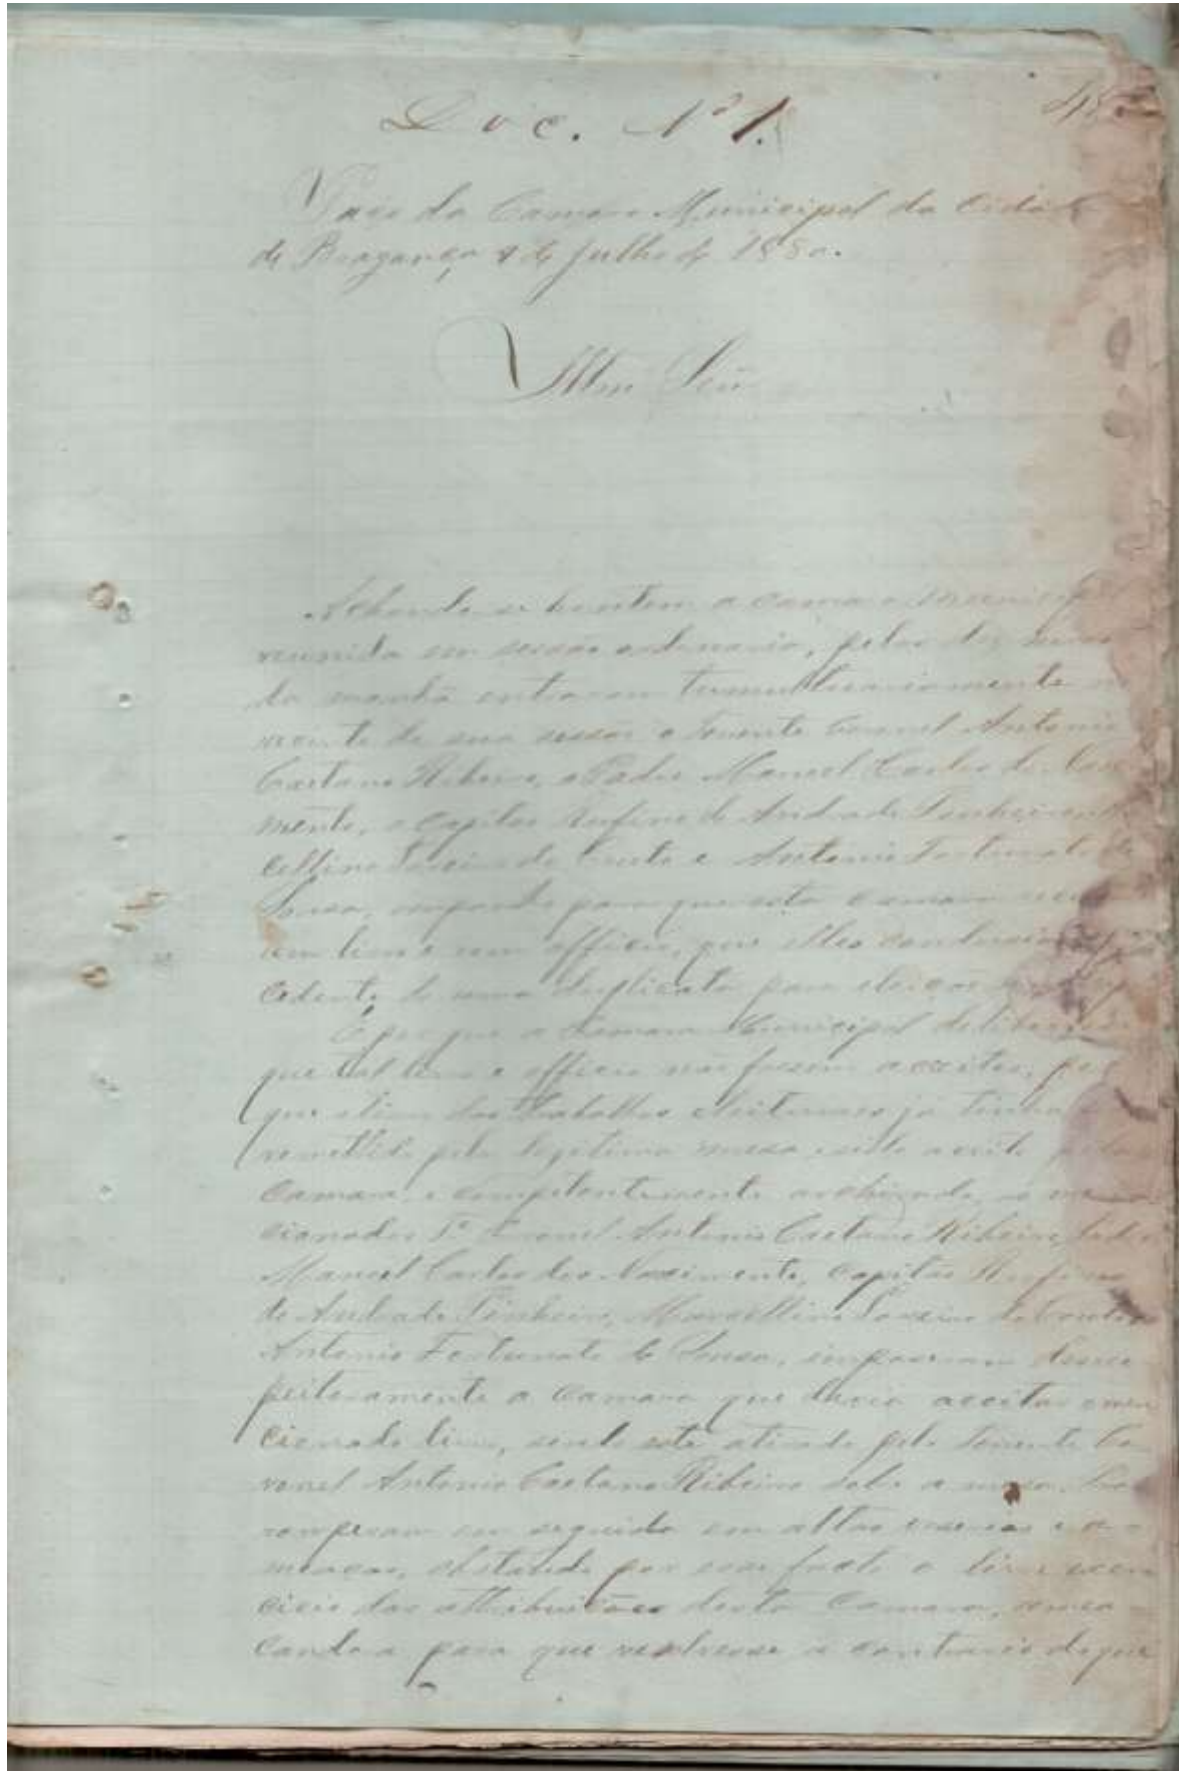 Doc. Nº 1.
Paço da Camara Municipal da Cida
de Bragança 8 de Julho de 1880.
Illmo Senr
Achando-se hontem a Camara Municip
reunida em sessão ordenaria, pelas dez
da manhã entraram tumultuariamente
de sua sessão o Tenente Coronel Antonio
Caetano Ribeiro, o Padre Manoel Carlos do Nas
mento, o Capitão Rufino de Andrade Pinheiro
cellino do Couto e Antonio Fortunato de
Sousa, para que esta Camara
um livro e um officio, que elles
cedente de uma duplicata para eleição
E por que a Camara Municipal
que tal livro e officio não fossem acceitos,
que alem dos trabalhos eleitoraes já tinha
remettido pela legitima mesa, acceito
Camara e competentemente archivado,
cionados Te Coronel Antonio Caetano Ribeiro,
Manoel Carlos do Nascimento, Capitão Rufino
de Andrade Pinheiro, Marcellino do Couto
Antonio Fortunato de Sousa,
peitosamente a Camara que devia acceitar o men
cionado livro, sendo este atirado pelo Tenente Co
ronel Antonio Caetano Ribeiro sobre a mesa.
romperam em seguida em altas vozerias e a
meaças, obstando por esse facto o livre exer
cicio das attribuições desta Camara, amea
çando-a para que resolvesse o contrario do que